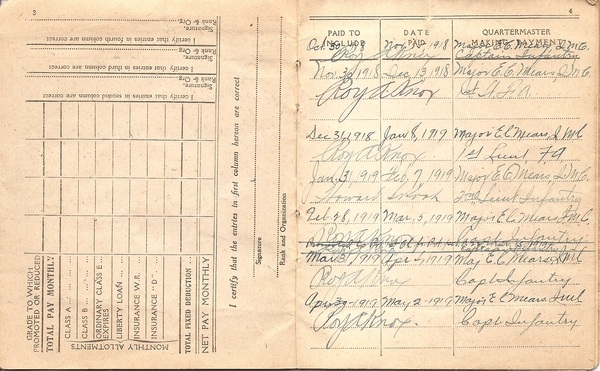 3
Signature.
Rank & Org.
I certify that entries in fourth column are correct
Signature.
Rank & Org.
I certify that entries in third column are correct
Signature.
Rank & Org.
I certify that entries in second column are correct
GRADE TO WHICH PROMOTED OR REDUCED
TOTAL PAY MONTHLY
CLASS A
CLASS B
ORDINARY CLASS E EXPIRES
LIBERTY LOAN
INSURANCE W.R.
INSURANCE "D"
MONTHLY ALLOTMENTS
TOTAL FIXED DEDUCTION
NET PAY MONTHLY
I certify that the entries in first column hereon are correct
Signature
Rank and Organization
4
PAID TO INCLUDE
DATE PAID
QUARTERMASTER MAKING PAYMENT
1918 Major E. C. Mears, Q.M.C.
Captain Infantry
Nov 30 1918 Dec 13, 1918 Major E. C. Mears, Q.M.C.
Roy A Knox
Dec 31, 1918 Jan 8, 1919 Major E. C. Mears, Q.M.C.
Roy A Knox 1st Lieut, F.A.
Jan 31 1919 Feb 7, 1919 Major E. C. Mears, Q.M.C.
Howard 2nd Lieut Infantry
Feb 28, 1919 Mar 5, 1919 Major E. C. Mears Q.M.C.
Roy A Knox Capt Infantry
Mar 31, 1919 Apr 1919 Maj E. C. Mears Q.M.C.
Roy A Knox Capt Infantry
Apr 30 1919 May 2 1919 Major E. C. Mears Q.M.C.
Roy A Knox. Capt Infantry